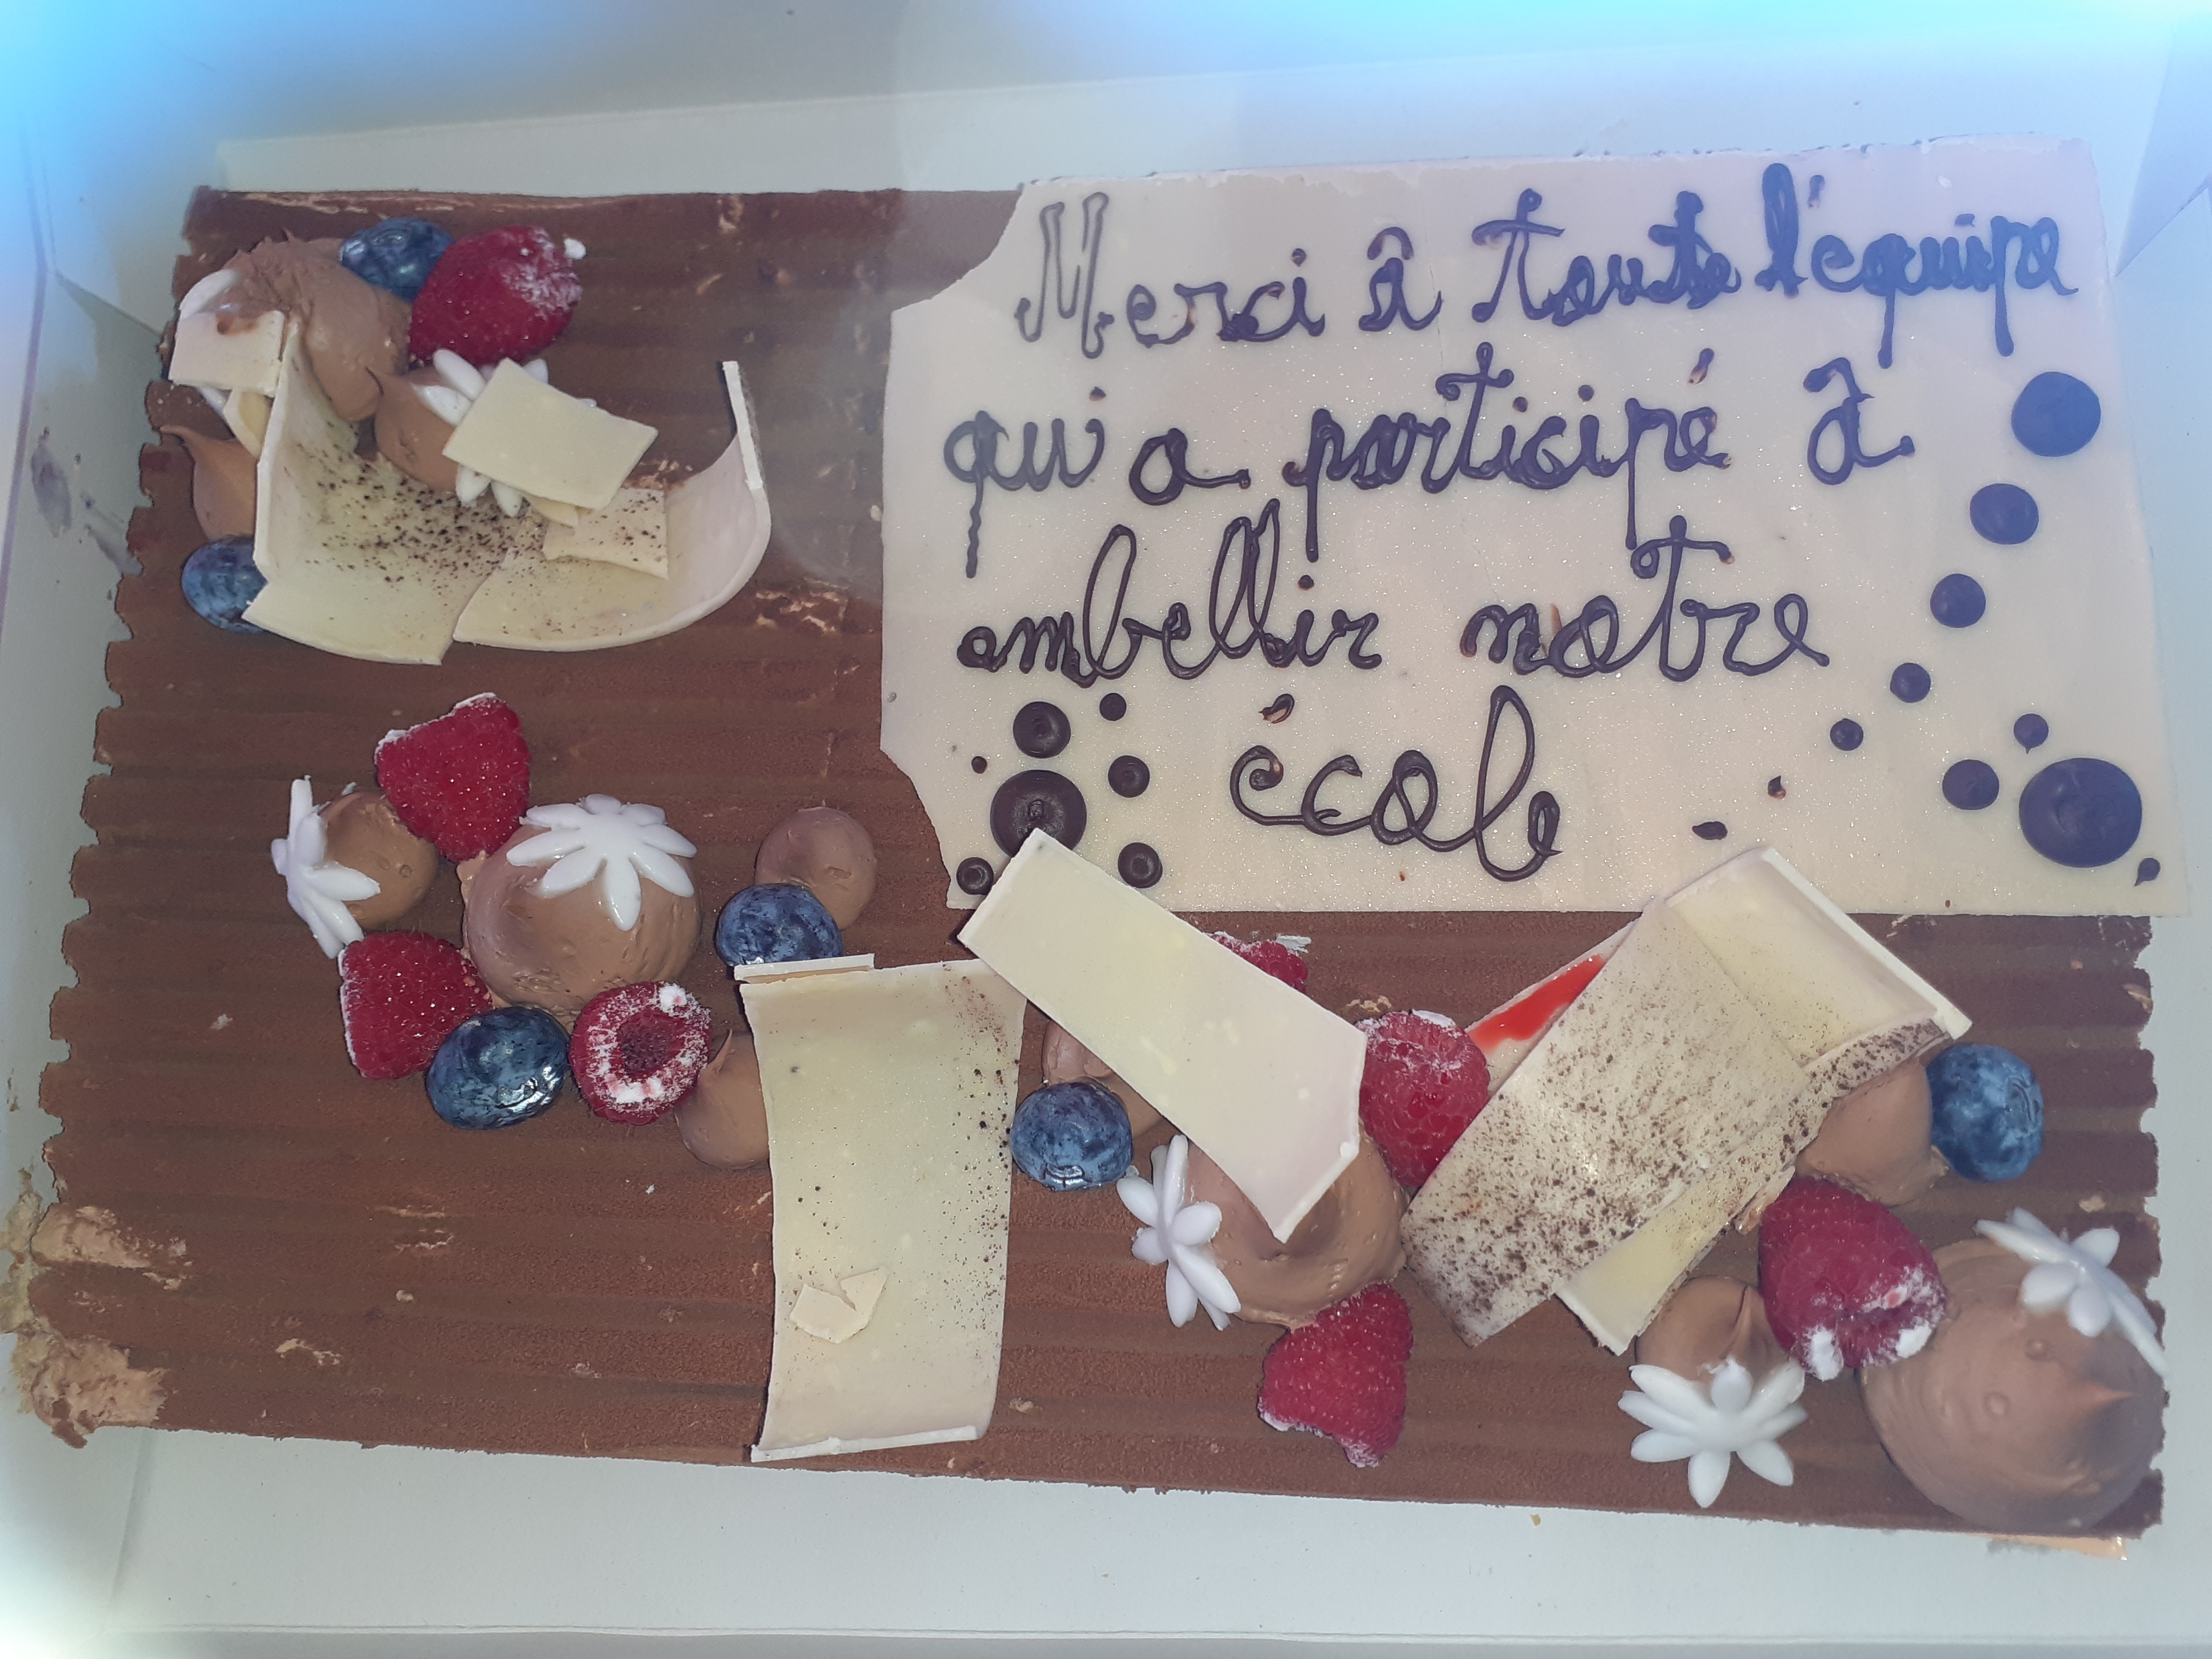 Merci à toute l'équipe
qui a participé à
embellir notre
école